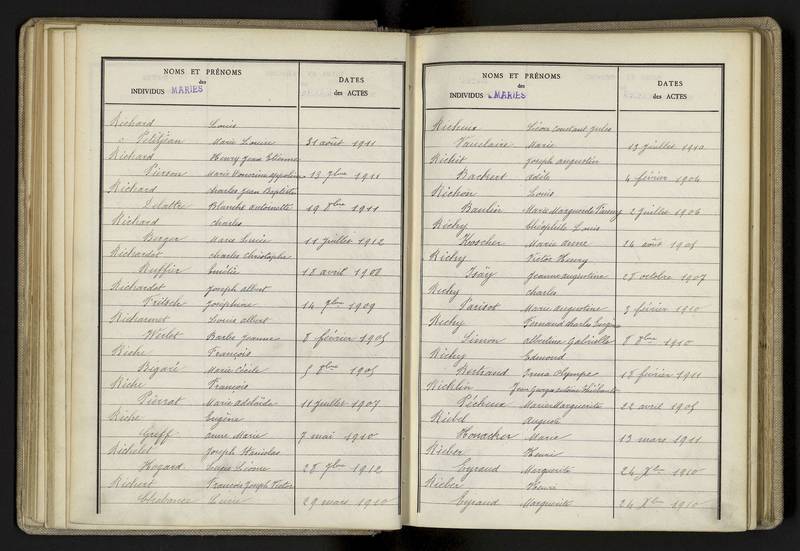 NOMS ET PRÉNOMS
des
INDIVIDUS MARIÉS
DATES
des ACTES
Richard Louis
Petitjean Marie Louise 31 août 1911
Richard Henry Jean Etienne
Pierson Marie Honorine 13 7bre 1911
Richard Charles Jean Baptiste
Delattre Blanche Antoinette 19 8bre 1911
Richard Charles
Berger Marie Lucie 11 juillet 1912
Richardot Charles Christophe
Ruffin Emélie 18 avril 1908
Richardot Joseph Albert
Fritsch Joséphine 14 1909
Richarmet Louis Albert
Barbe Jeanne 8 février 1905
Riche François
Bigaré Marie Cécile 5 8bre 1905
Riche François
Pierrat Marie Adelaïde 11 juillet 1907
Riche Eugène
Greff Anne Marie 7 mai 1910
Richelet Joseph Stanislas
Hogard Léonie 28 1912
Richert François Joseph Victor
Chabanec Lucie 29 mars 1910
NOMS ET PRÉNOMS
des
INDIVIDUS MARIÉS
DATES
des ACTES
Richeux Léon Constant Jules
Vauclaire Marie 13 juillet 1910
Richit Joseph Augustin
Backert Adèle 4 février 1904
Richon Louis
Baulin Marie Marguerite Fanny 2 juillet 1906
Richy Théophile Louis
Koscher Marie Anne 26 août 1905
Richy Victor Henry
Isäy Jeanne Augustine 28 octobre 1907
Richy Charles
Parisot Marie Augustine 3 février 1910
Richy Fernand Charles Eugène
Simon Albertine Gabrielle 8 8bre 1910
Richy Edmond
Bertrand Irma Olympe 18 février 1911
Ricklin
Pécheux Marie Marguerite 22 avril 1905
Riebel August
Honacker Marie 13 mars 1911
Rieber Henri
Eyraud Marguerite 24 Xbre 1910
Rieber Henri
Eyraud Marguerite 24 Xbre 1910